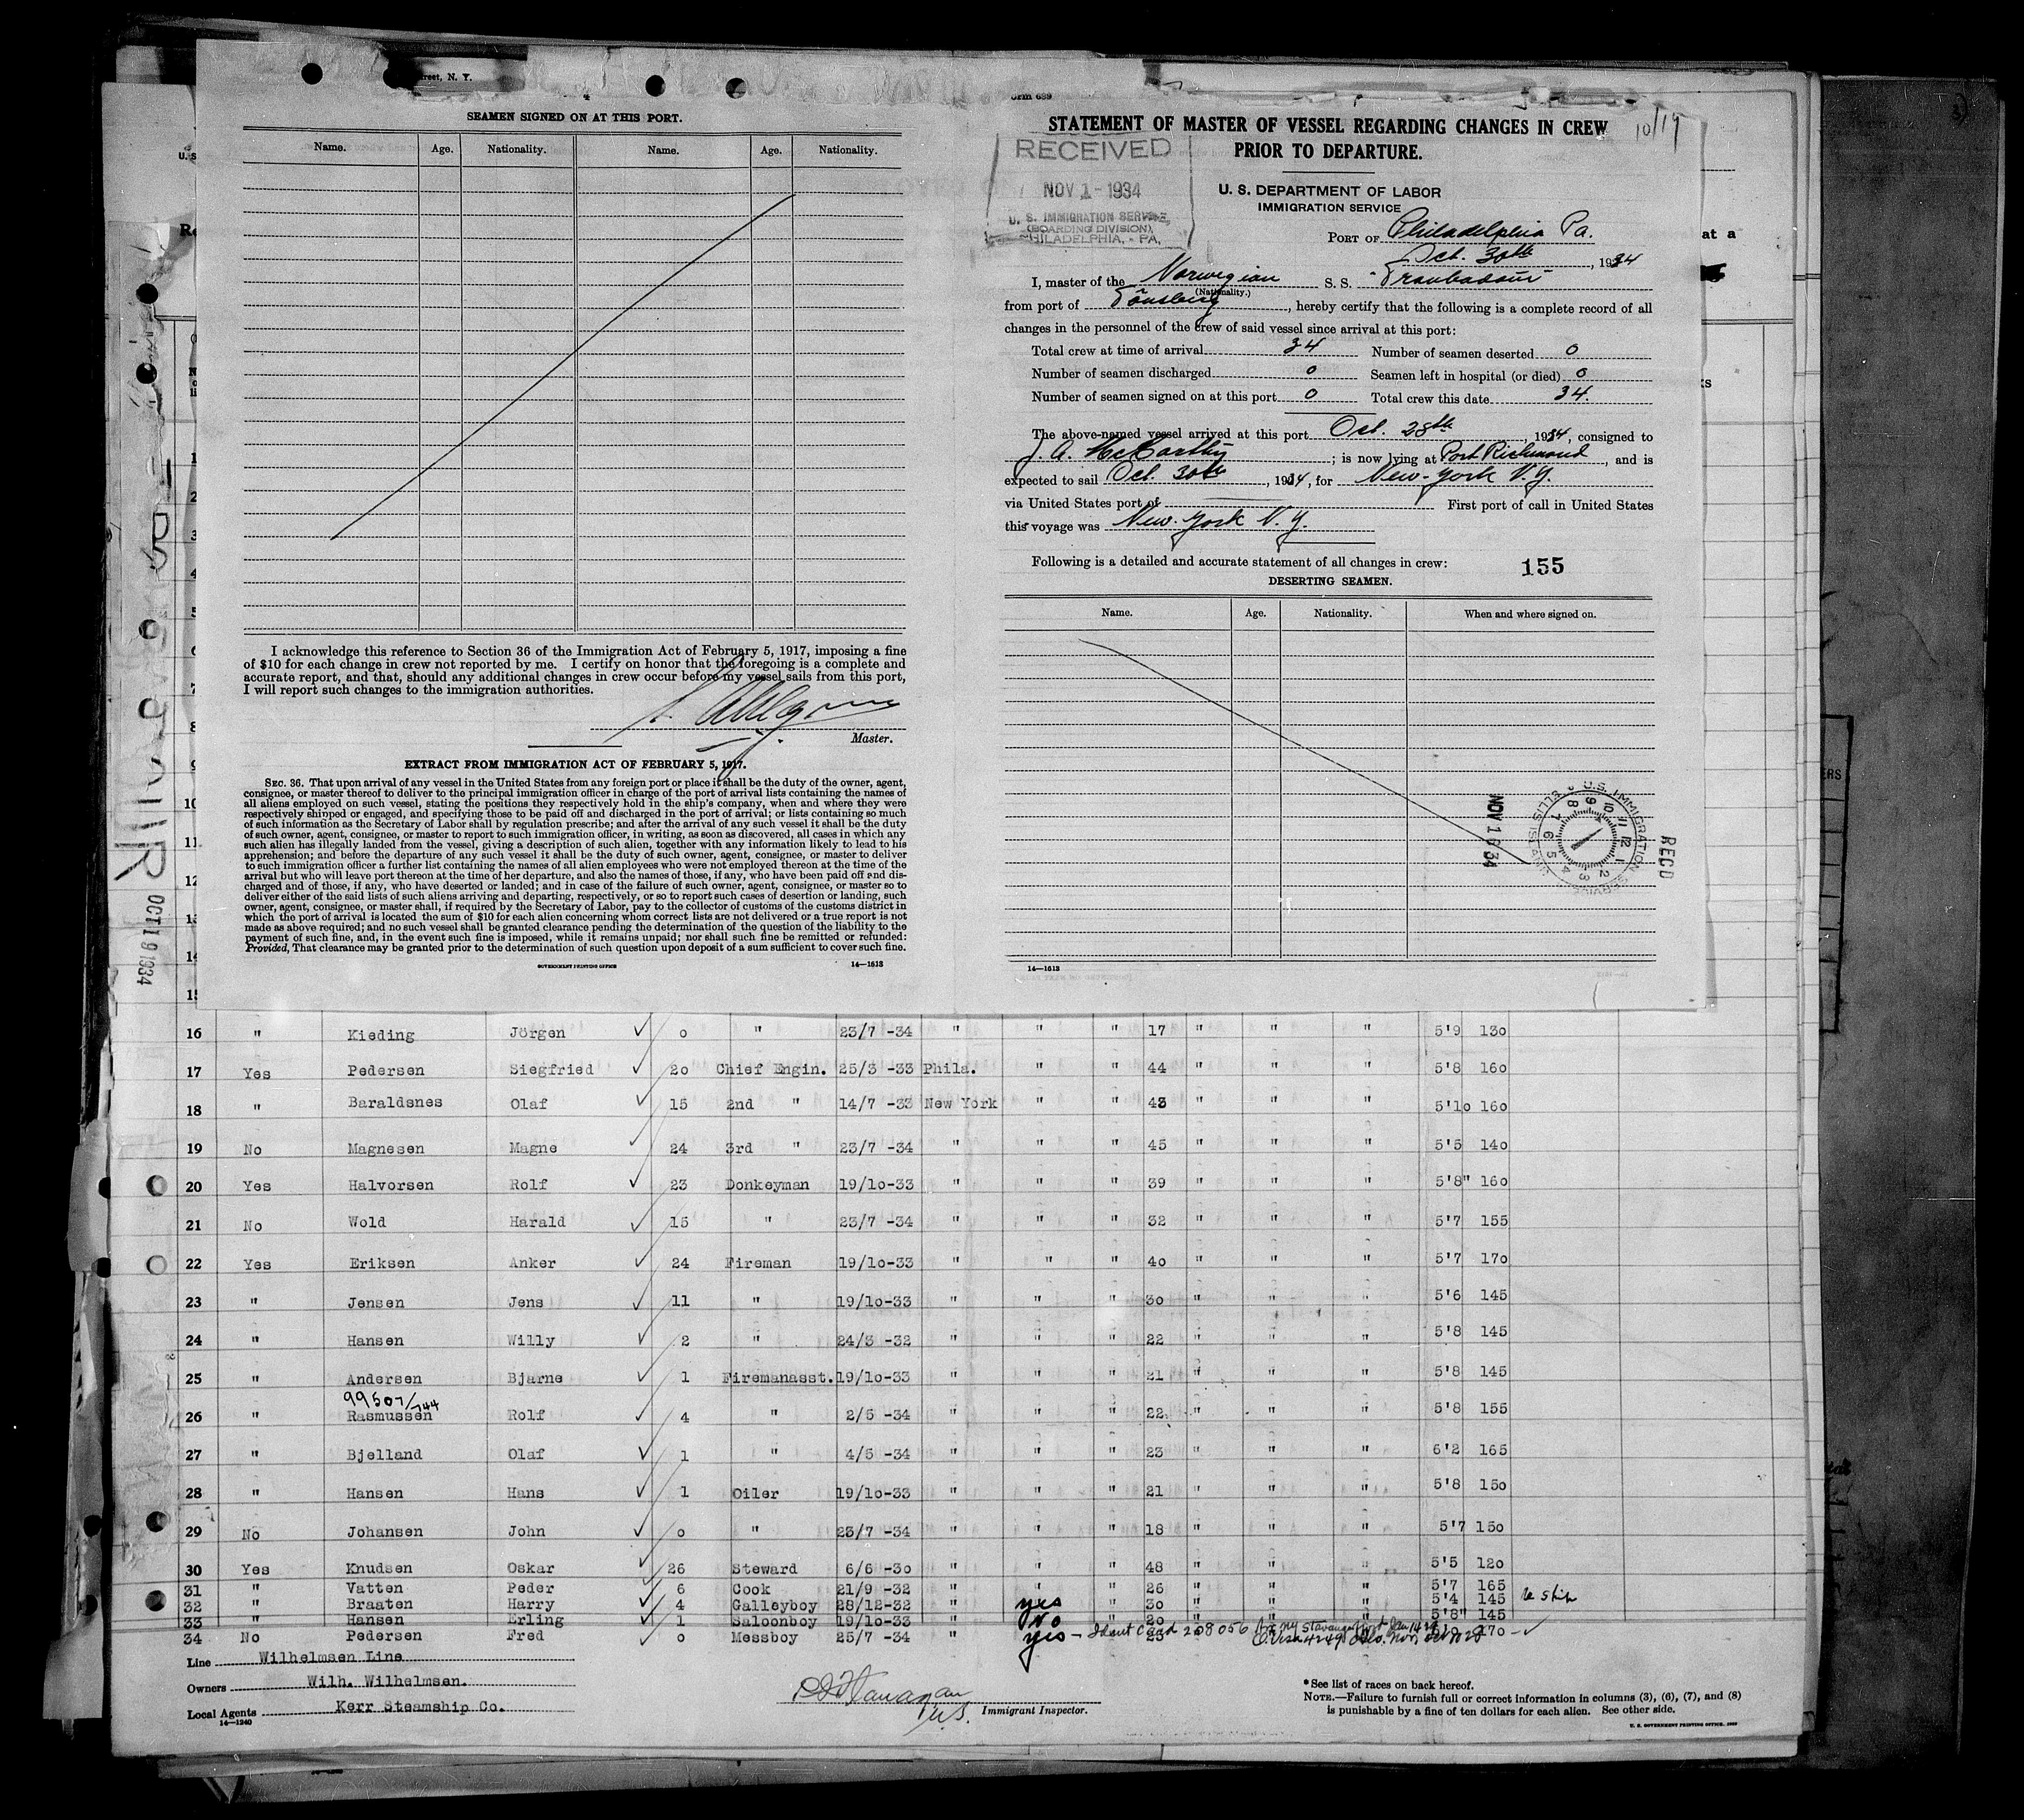 treet, N. Y.
4
SEAMEN SIGNED ON AT THIS PORT.
Name. Age. Nationality. Name. Age. Nationality.
I acknowledge this reference to Section 36 of the Immigration Act of February 5, 1917, imposing a fine
of $10 for each change in crew not reported by me. I certify on honor that the foregoing is a complete and
accurate report, and that, should any additional changes in crew occur before my vessel sails from this port,
I will report such changes to the immigration authorities.
Master.
EXTRACT FROM IMMIGRATION ACT OF FEBRUARY 5, 1917.
SEC. 36. That upon arrival of any vessel in the United States from any foreign port or place it shall be the duty of the owner, agent,
consignee, or master thereof to deliver to the principal immigration officer in charge of the port of arrival lists containing the names of
all aliens employed on such vessel, stating the positions they respectively hold in the ship's company, when and where they were
respectively shipped or engaged, and specifying those to be paid off and discharged in the port of arrival; or lists containing so much
of such information as the Secretary of Labor shall by regulation prescribe; and after the arrival of any such vessel it shall be the duty
of such owner, agent, consignee, or master to report to such immigration officer, in writing, as soon as discovered, all cases in which any
such alien has illegally landed from the vessel, giving a description of such alien, together with any information likely to lead to his
apprehension; and before the departure of any such vessel it shall be the duty of such owner, agent, consignee, or master to deliver
to such immigration officer a further list containing the names of all alien employees who were not employed thereon at the time of the
arrival but who will leave port thereon at the time of her departure, and also the names of those, if any, who have been paid off and dis-
charged and of those, if any, who have deserted or landed; and in case of the failure of such owner, agent, consignee, or master so to
deliver either of the said lists of such aliens arriving and departing, respectively, or so to report such cases of desertion or landing, such
owner, agent, consignee, or master shall, if required by the Secretary of Labor, pay to the collector of customs of the customs district in
which the port of arrival is located the sum of $10 for each alien concerning whom correct lists are not delivered or a true report is not
made as above required; and no such vessel shall be granted clearance pending the determination of the question of the liability to the
payment of such fine, and, in the event such fine is imposed, while it remains unpaid; nor shall such fine be remitted or refunded:
Provided, That clearance may be granted prior to the determination of such question upon deposit of a sum sufficient to cover such fine.
GOVERNMENT PRINTING OFFICE 14—1613
orm 689
STATEMENT OF MASTER OF VESSEL REGARDING CHANGES IN CREW
PRIOR TO DEPARTURE.
10/19
RECEIVED
NOV 1 - 1934
U. S. IMMIGRATION SERVICE,
(BOARDING DIVISION),
PHILADELPHIA, - PA.
U. S. DEPARTMENT OF LABOR
IMMIGRATION SERVICE
PORT OF Philadelphia Pa.
Oct. 30th, 1934
I, master of the Norwegian S. S. "Troubadour"
(Nationality.)
from port of Tönsberg, hereby certify that the following is a complete record of all
changes in the personnel of the crew of said vessel since arrival at this port:
Total crew at time of arrival 34 Number of seamen deserted 0
Number of seamen discharged 0 Seamen left in hospital (or died) 0
Number of seamen signed on at this port 0 Total crew this date 34.
The above-named vessel arrived at this port Oct. 28th, 1934, consigned to
J. A. McCarthy; is now lying at Port Richmond, and is
expected to sail Oct. 30th, 1934, for New-York N.Y.
via United States port of First port of call in United States
this voyage was New-York N.Y.
Following is a detailed and accurate statement of all changes in crew: 155
DESERTING SEAMEN.
Name. Age. Nationality. When and where signed on.
NOV 1 6 34
U.S. IMMIGRATION SERVICE ELLIS ISLAND
REC'D
14—1613
OCT 19 1934
at a
16 " Kieding Jörgen 0 " 23/7 -34 " " " 17 " " " 5'9 130
17 Yes Pedersen Siegfried 20 Chief Engin. 25/3 -33 Phila. " " 44 " " " 5'8 160
18 " Baraldsnes Olaf 15 2nd " 14/7 -33 New York " " 43 " " " 5'10 160
19 No Magnesen Magne 24 3rd " 23/7 -34 " " " 45 " " " 5'5 140
20 Yes Halvorsen Rolf 23 Donkeyman 19/10-33 " " " 39 " " " 5'8" 160
21 No Wold Harald 15 " 23/7 -34 " " " 32 " " " 5'7 155
22 Yes Eriksen Anker 24 Fireman 19/10-33 " " " 40 " " " 5'7 170
23 " Jensen Jens 11 " 19/10-33 " " " 30 " " " 5'6 145
24 " Hansen Willy 2 " 24/3 -32 " " " 22 " " " 5'8 145
25 " Andersen Bjarne 1 Firemanasst. 19/10-33 " " " 21 " " " 5'8 145
99507/744
26 " Rasmussen Rolf 4 " 2/5 -34 " " " 22 " " " 5'8 155
27 " Bjelland Olaf 1 " 4/5 -34 " " " 23 " " " 6'2 165
28 " Hansen Hans 1 Oiler 19/10-33 " " " 21 " " " 5'8 150
29 No Johansen John 0 " 23/7 -34 " " " 18 " " " 5'7 150
30 Yes Knudsen Oskar 26 Steward 6/6 -30 " " " 48 " " " 5'5 120
31 " Vatten Peder 6 Cook 21/9 -32 " " " 26 " " " 5'7 165
32 " Braaten Harry 4 Galleyboy 28/12-32 " yes " 30 " " " 5'4 145
33 " Hansen Erling 1 Saloonboy 19/10-33 " No " 20 " " " 5'8" 145
34 No Pedersen Fred 0 Messboy 25/7 -34 " yes - Ident Card 208056 170
Line Wilhelmsen Line
Owners Wilh. Wilhelmsen.
Local Agents Kerr Steamship Co.
14—1240
Immigrant Inspector.
* See list of races on back hereof.
NOTE.—Failure to furnish full or correct information in columns (3), (6), (7), and (8)
is punishable by a fine of ten dollars for each alien. See other side.
U. S. GOVERNMENT PRINTING OFFICE